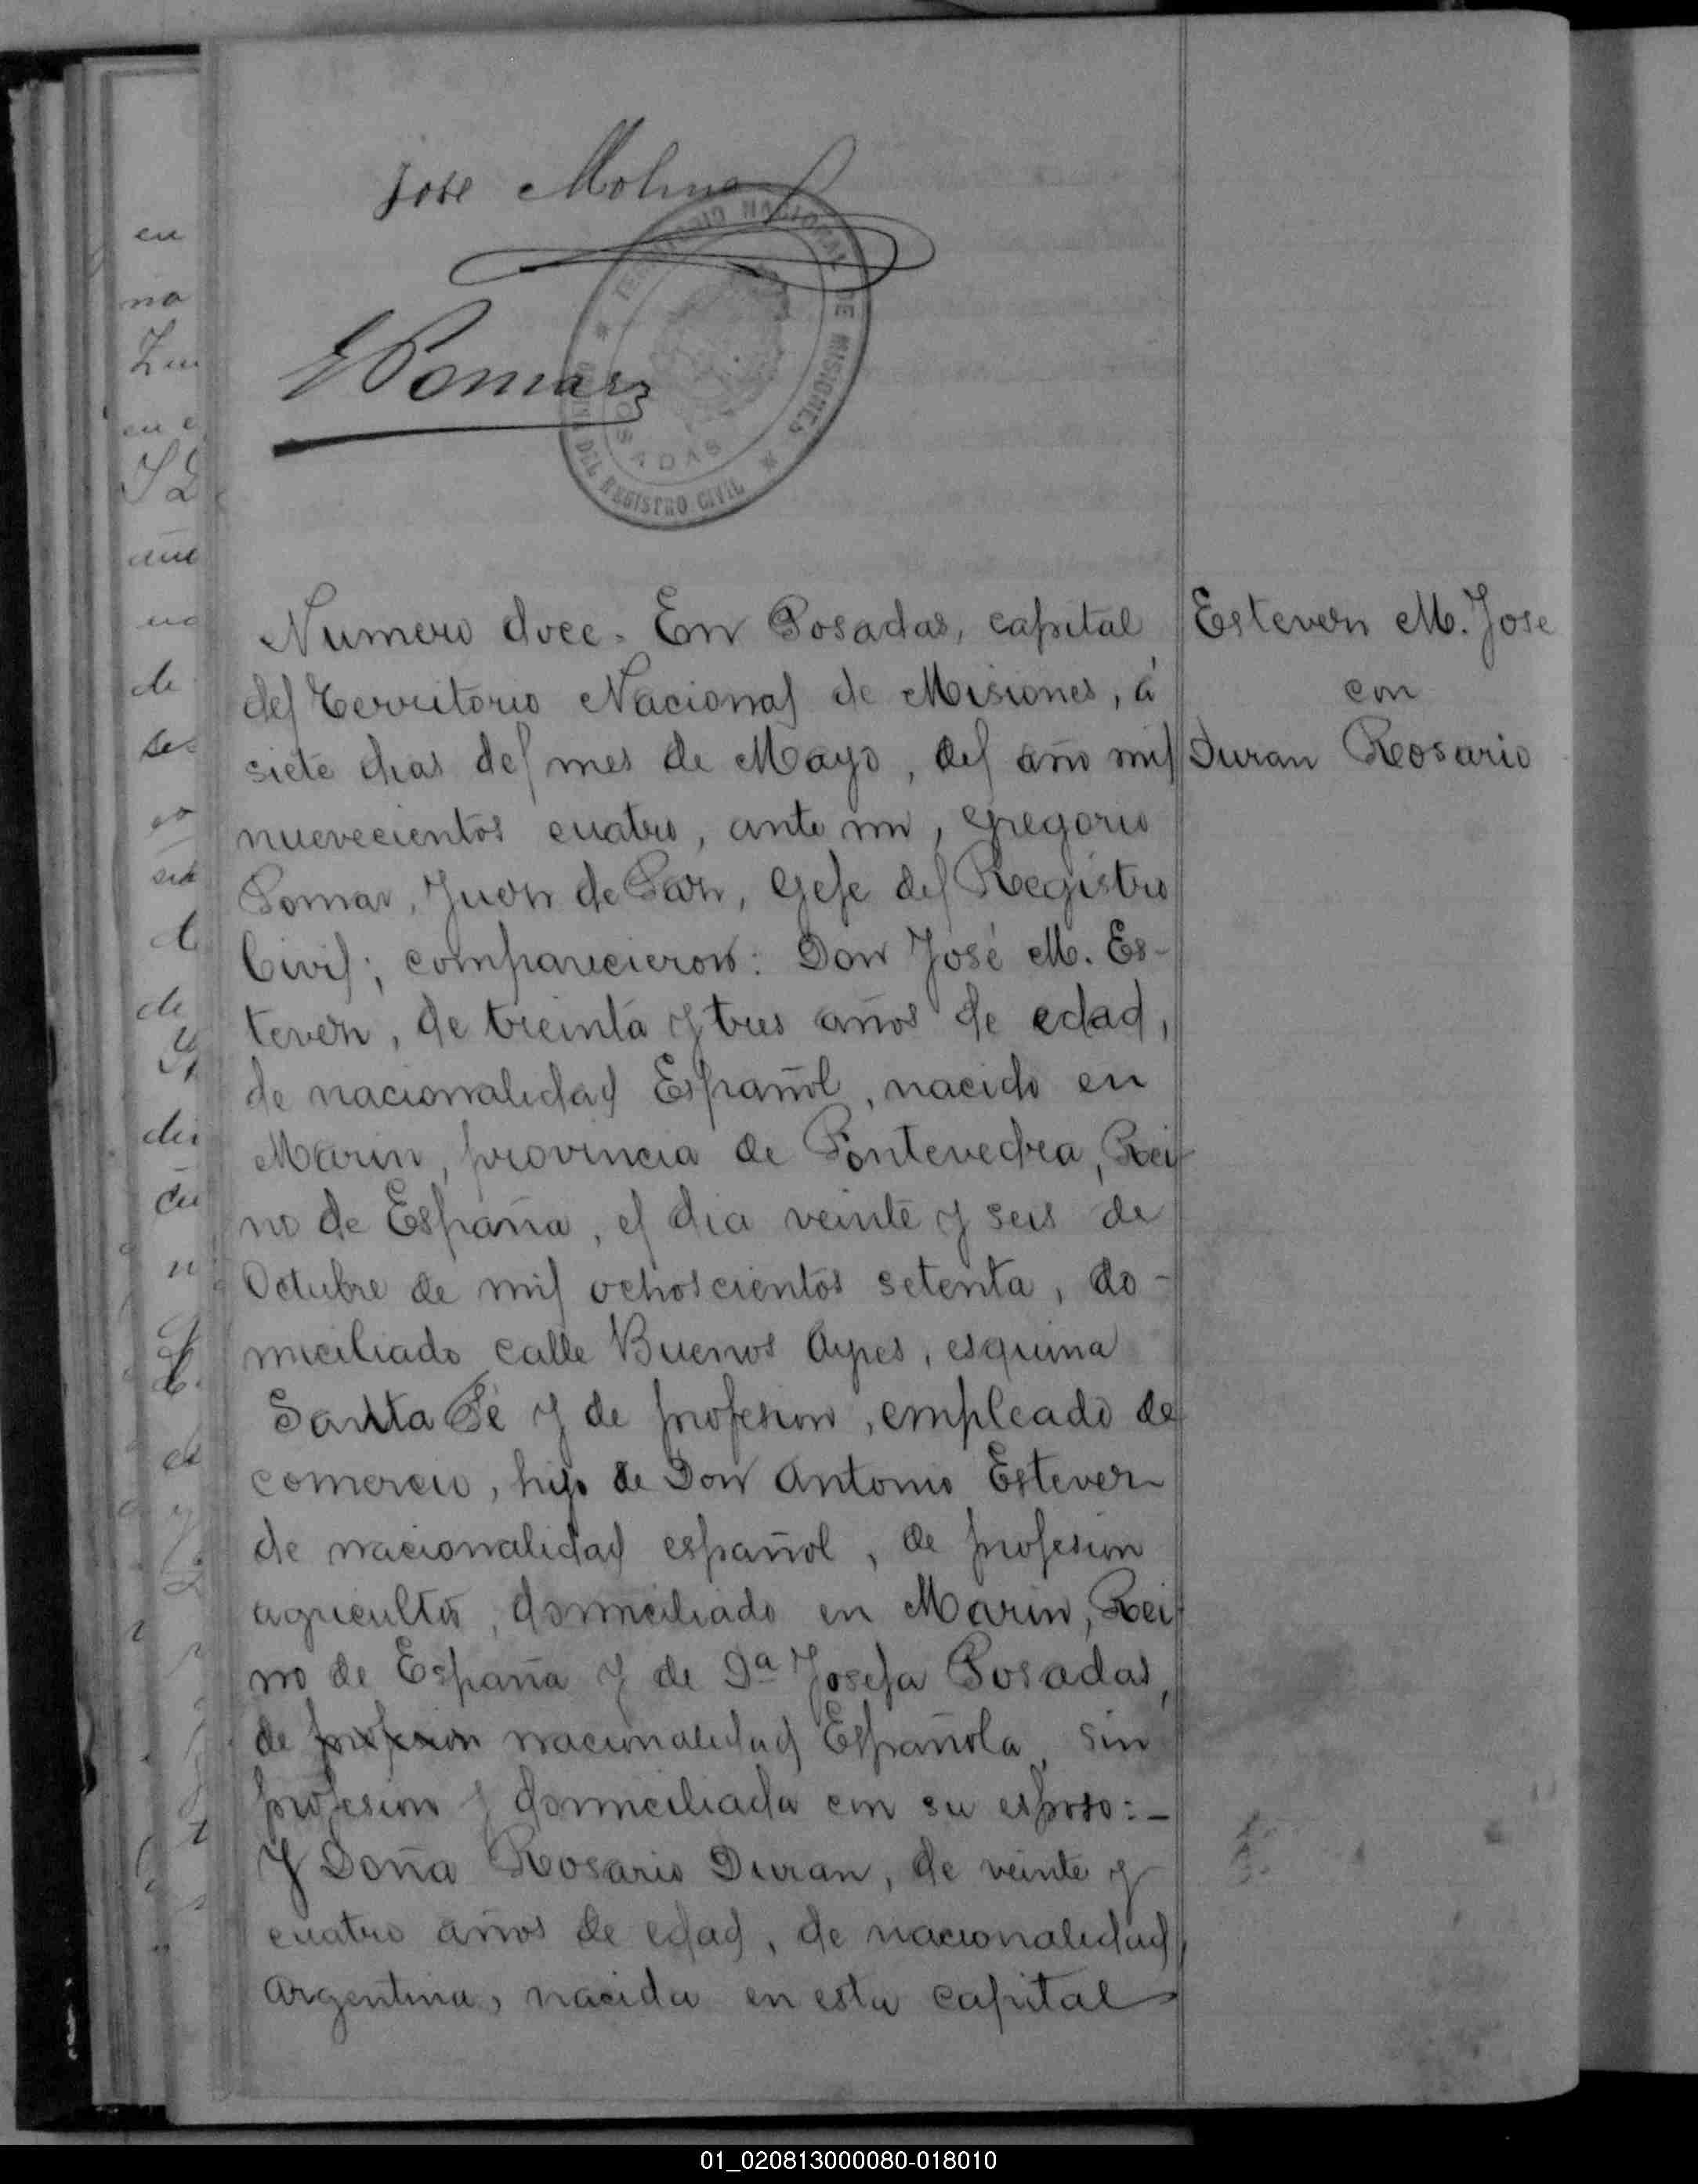 Jose Molina
TERRITORIO NACIONAL DE MISIONES
OFICINA DEL REGISTRO CIVIL
POSADAS
G Pomar
Numero doce. En Posadas, capital
del Territorio Nacional de Misiones, á
siete dias del mes de Mayo, del año mil
nuevecientos cuatro, ante mi, Gregorio
Pomar, Juez de Paz, Gefe del Registro
Civil; comparecieron: Don José M. Es-
tevez, de treinta y tres años de edad,
de nacionalidad Español, nacido en
Marin, provincia de Pontevedra, Rei
no de España, el dia veinte y seis de
Octubre de mil ochoscientos setenta, do-
miciliado calle Buenos Ayres, esquina
Santa Fé y de profesion, empleado de
comercio, hijo de Don Antonio Estevez
de nacionalidad español, de profesion
agricultor, domiciliado en Marin, Rei
no de España y de Da Josefa Posadas,
de profesion nacionalidad Española, sin
profesion y domiciliada con su esposo:-
Y Doña Rosario Duran, de veinte y
cuatro años de edad, de nacionalidad,
Argentina, nacida en esta capital
Estevez M. Jose
con
Duran Rosario
en
no
en
de
de
01_020813000080-018010